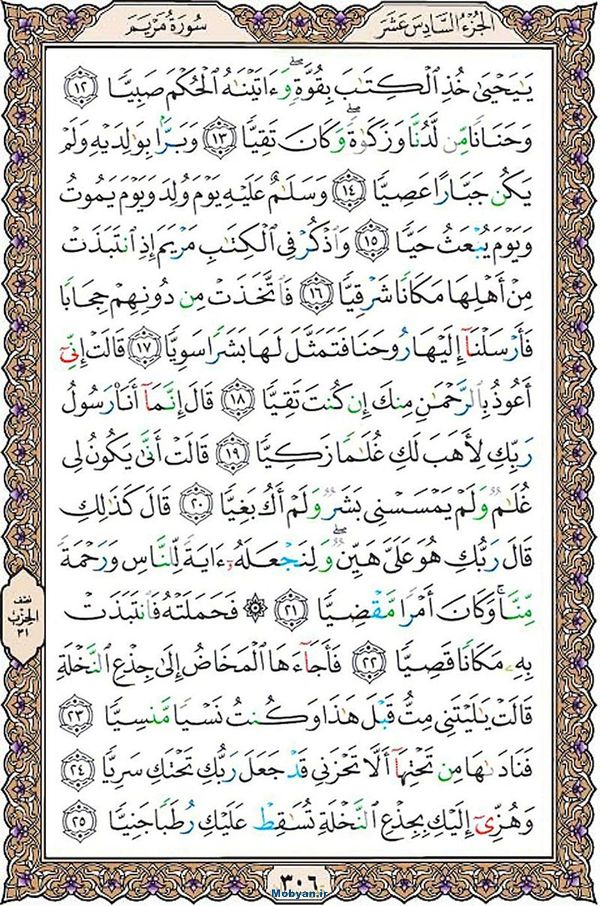 الجُزءُ السَّادِسَ عَشَرَ
سُورَةُ مَرْيَمَ
يَٰيَحْيَىٰ خُذِ ٱلْكِتَٰبَ بِقُوَّةٍۖ وَءَاتَيْنَٰهُ ٱلْحُكْمَ صَبِيًّا ١٢
وَحَنَانًا مِّن لَّدُنَّا وَزَكَوٰةًۖ وَكَانَ تَقِيًّا ١٣ وَبَرًّۢا بِوَٰلِدَيْهِ وَلَمْ
يَكُن جَبَّارًا عَصِيًّا ١٤ وَسَلَٰمٌ عَلَيْهِ يَوْمَ وُلِدَ وَيَوْمَ يَمُوتُ
وَيَوْمَ يُبْعَثُ حَيًّا ١٥ وَٱذْكُرْ فِى ٱلْكِتَٰبِ مَرْيَمَ إِذِ ٱنتَبَذَتْ
مِنْ أَهْلِهَا مَكَانًا شَرْقِيًّا ١٦ فَٱتَّخَذَتْ مِن دُونِهِمْ حِجَابًا
فَأَرْسَلْنَآ إِلَيْهَا رُوحَنَا فَتَمَثَّلَ لَهَا بَشَرًا سَوِيًّا ١٧ قَالَتْ إِنِّىٓ
أَعُوذُ بِٱلرَّحْمَٰنِ مِنكَ إِن كُنتَ تَقِيًّا ١٨ قَالَ إِنَّمَآ أَنَا۠ رَسُولُ
رَبِّكِ لِأَهَبَ لَكِ غُلَٰمًا زَكِيًّا ١٩ قَالَتْ أَنَّىٰ يَكُونُ لِى
غُلَٰمٌ وَلَمْ يَمْسَسْنِى بَشَرٌ وَلَمْ أَكُ بَغِيًّا ٢٠ قَالَ كَذَٰلِكِ
قَالَ رَبُّكِ هُوَ عَلَىَّ هَيِّنٌۖ وَلِنَجْعَلَهُۥٓ ءَايَةً لِّلنَّاسِ وَرَحْمَةً
مِّنَّاۚ وَكَانَ أَمْرًا مَّقْضِيًّا ٢١ ۞ فَحَمَلَتْهُ فَٱنتَبَذَتْ
بِهِۦ مَكَانًا قَصِيًّا ٢٢ فَأَجَآءَهَا ٱلْمَخَاضُ إِلَىٰ جِذْعِ ٱلنَّخْلَةِ
قَالَتْ يَٰلَيْتَنِى مِتُّ قَبْلَ هَٰذَا وَكُنتُ نَسْيًا مَّنسِيًّا ٢٣
فَنَادَىٰهَا مِن تَحْتِهَآ أَلَّا تَحْزَنِى قَدْ جَعَلَ رَبُّكِ تَحْتَكِ سَرِيًّا ٢٤
وَهُزِّىٓ إِلَيْكِ بِجِذْعِ ٱلنَّخْلَةِ تُسَٰقِطْ عَلَيْكِ رُطَبًا جَنِيًّا ٢٥
نصف
الحزب
٣١
٣٠٦
Mobyan.ir